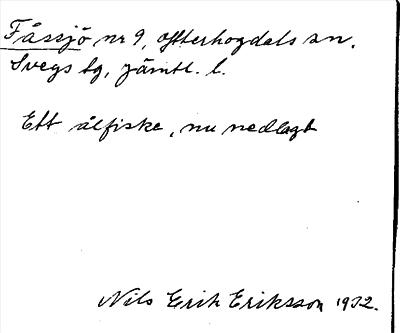 Fåssjö nr 9, ytterhogdals sn.
Svegs tg, jämtl. l.
Ett ålfiske, nu nedlagt
Nils Erik Eriksson 1932.